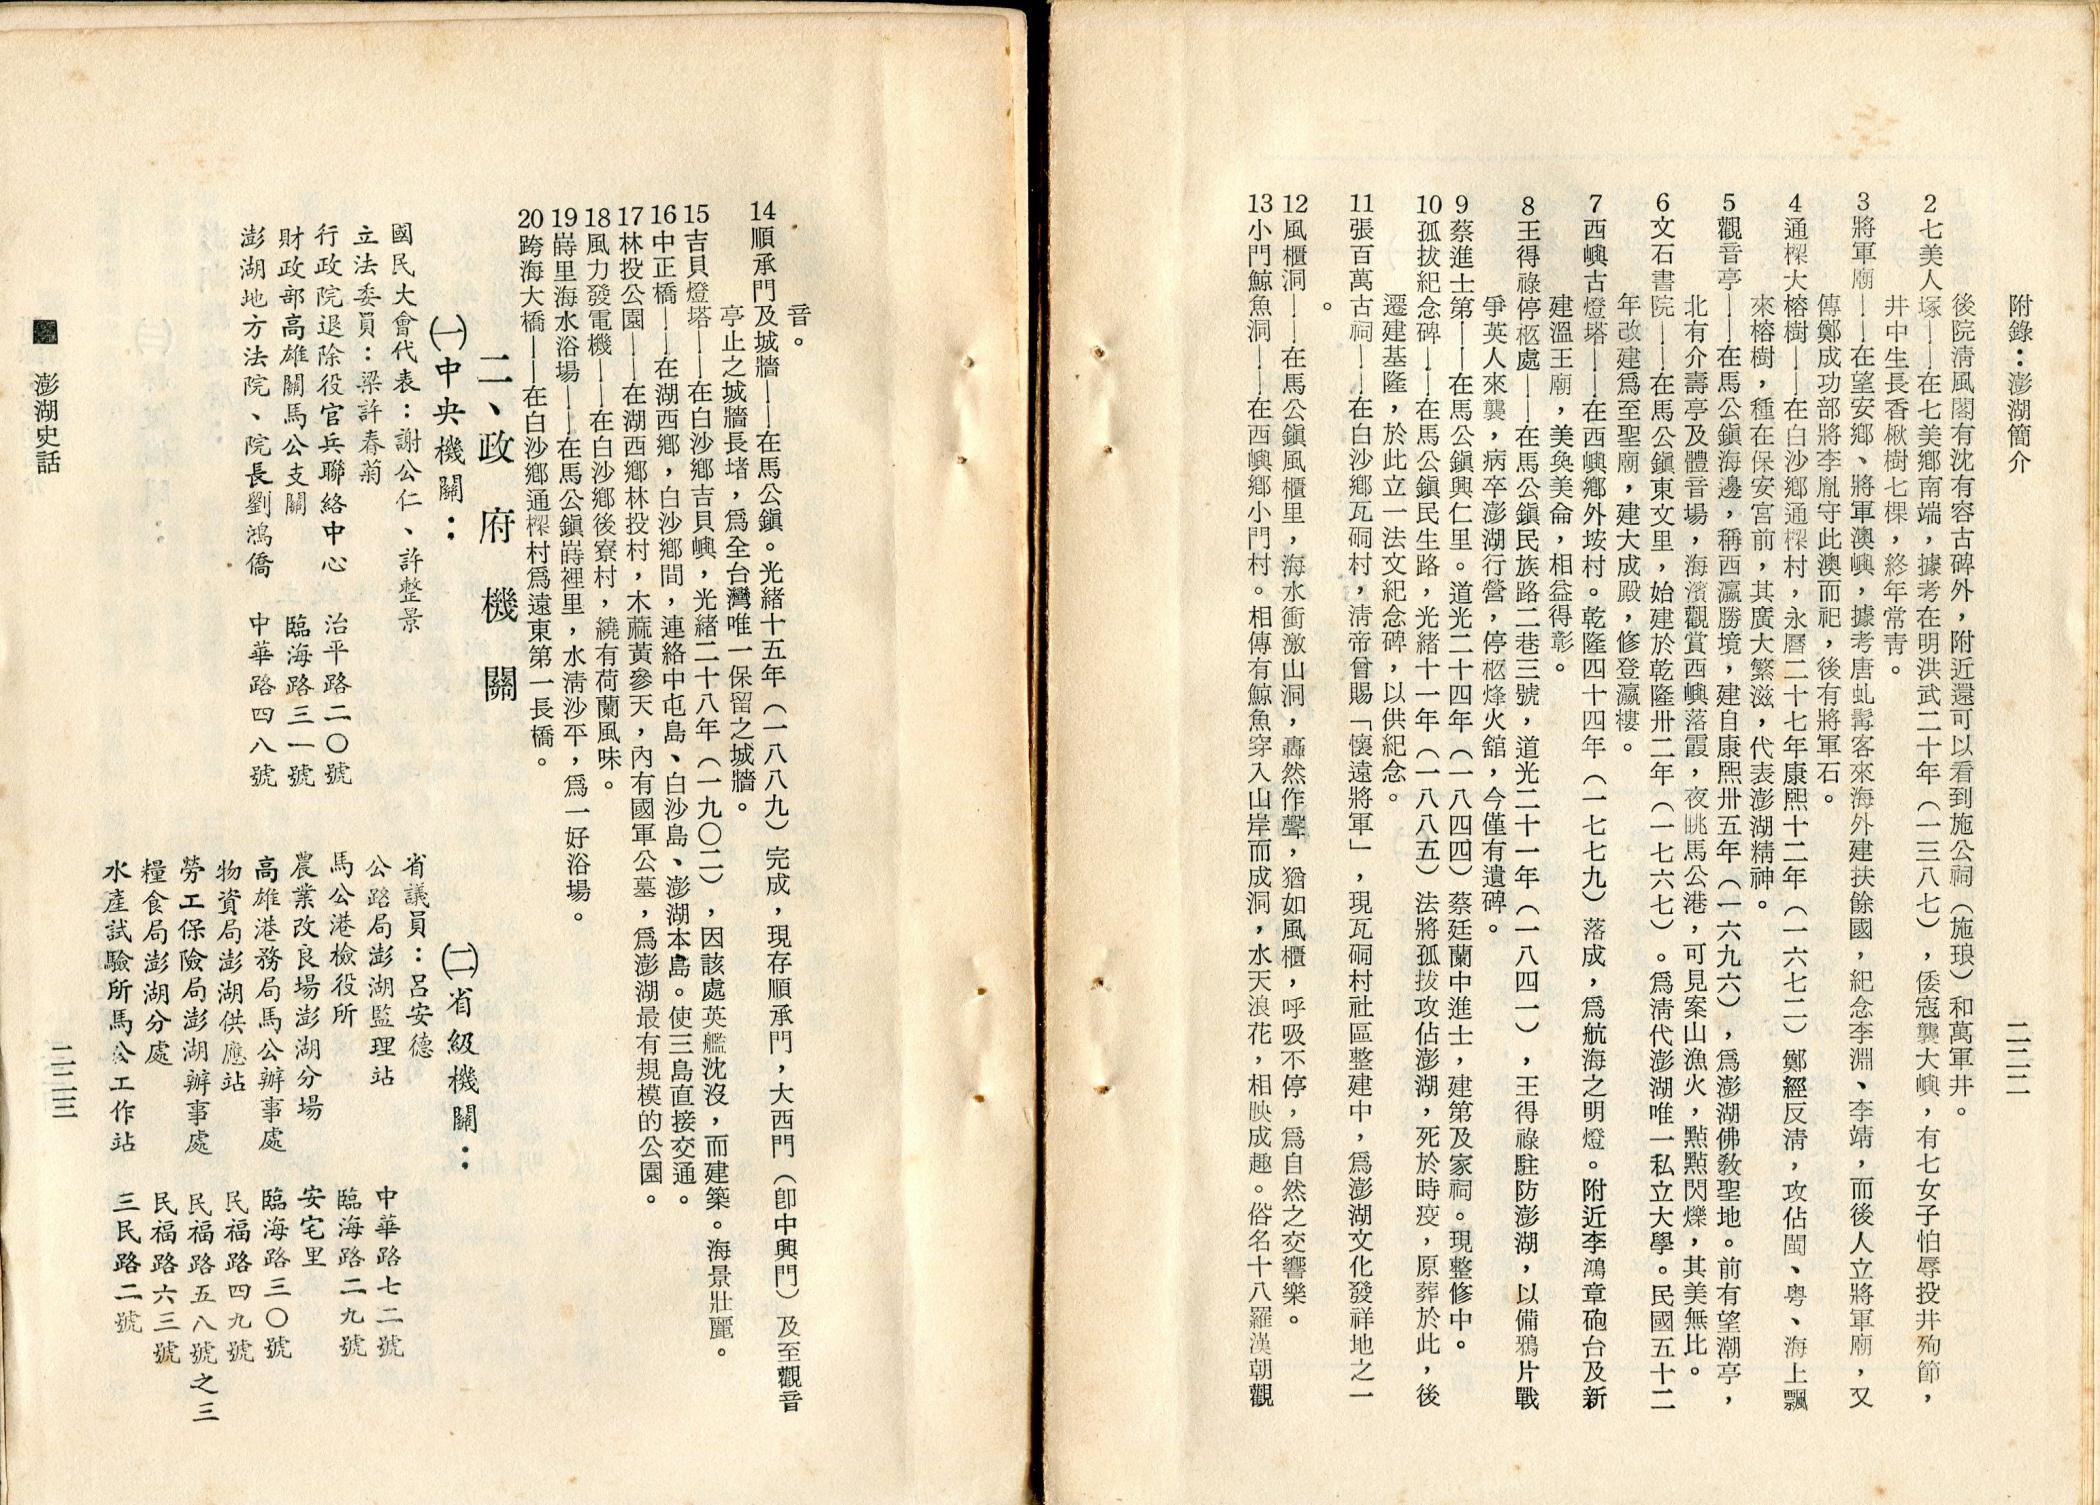 附錄：澎湖簡介
二二二
後院清風閣有沈有容古碑外，附近還可以看到施公祠（施琅）和萬軍井。
2七美人塚——在七美鄉南端，據考在明洪武二十年（一三八七），倭寇襲大嶼，有七女子怕辱投井殉節，
井中生長香楸樹七棵，終年常青。
3將軍廟——在望安鄉、將軍澳嶼，據考唐虬髯客來海外建扶餘國，紀念李淵、李靖，而後人立將軍廟，又
傳鄭成功部將李胤守此澳而祀，後有將軍石。
4通樑大榕樹——在白沙鄉通樑村，永曆二十七年康熙十二年（一六七二）鄭經反清，攻佔閩、粵、海上飄
來榕樹，種在保安宮前，其廣大繁滋，代表澎湖精神。
5觀音亭——在馬公鎮海邊，稱西瀛勝境，建自康熙卅五年（一六九六），爲澎湖佛教聖地。前有望潮亭，
北有介壽亭及體音場，海濱觀賞西嶼落霞，夜眺馬公港，可見案山漁火，點點閃爍，其美無比。
6文石書院——在馬公鎮東文里，始建於乾隆卅二年（一七六七）。爲清代澎湖唯一私立大學。民國五十二
年改建爲至聖廟，建大成殿，修登瀛樓。
7西嶼古燈塔——在西嶼鄉外垵村。乾隆四十四年（一七七九）落成，爲航海之明燈。附近李鴻章砲台及新
建溫王廟，美奐美侖，相益得彰。
8王得祿停柩處——在馬公鎮民族路二巷三號，道光二十一年（一八四一），王得祿駐防澎湖，以備鴉片戰
爭英人來襲，病卒澎湖行營，停柩烽火舘，今僅有遺碑。
9蔡進士第——在馬公鎮興仁里。道光二十四年（一八四四）蔡廷蘭中進士，建第及家祠。現整修中。
10孤拔紀念碑——在馬公鎮民生路，光緒十一年（一八八五）法將孤拔攻佔澎湖，死於時疫，原葬於此，後
遷建基隆，於此立一法文紀念碑，以供紀念。
11張百萬古祠——在白沙鄉瓦硐村，清帝曾賜「懷遠將軍」，現瓦硐村社區整建中，爲澎湖文化發祥地之一
。
12風櫃洞——在馬公鎮風櫃里，海水衝激山洞，轟然作聲，猶如風櫃，呼吸不停，爲自然之交響樂。
13小門鯨魚洞——在西嶼鄉小門村。相傳有鯨魚穿入山岸而成洞，水天浪花，相映成趣。俗名十八羅漢朝觀
音。
14順承門及城牆——在馬公鎮。光緒十五年（一八八九）完成，現存順承門，大西門（卽中興門）及至觀音
亭止之城牆長堵，爲全台灣唯一保留之城牆。
15吉貝燈塔——在白沙鄉吉貝嶼，光緒二十八年（一九〇二），因該處英艦沈沒，而建築。海景壯麗。
16中正橋——在湖西鄉，白沙鄉間，連絡中屯島、白沙島、澎湖本島。使三島直接交通。
17林投公園——在湖西鄉林投村，木蔴黃參天，內有國軍公墓，爲澎湖最有規模的公園。
18風力發電機——在白沙鄉後寮村，繞有荷蘭風味。
19嵵里海水浴場——在馬公鎮嵵裡里，水清沙平，爲一好浴場。
20跨海大橋——在白沙鄉通樑村爲遠東第一長橋。
二、政府機關
㈠中央機關：
國民大會代表：謝公仁、許整景
立法委員：梁許春菊
行政院退除役官兵聯絡中心　治平路二〇號
財政部高雄關馬公支關　臨海路三一號
澎湖地方法院、院長劉鴻僑　中華路四八號
㈡省級機關：
省議員：呂安德
公路局澎湖監理站　中華路七二號
馬公港檢役所　臨海路二九號
農業改良場澎湖分場　安宅里
高雄港務局馬公辦事處　臨海路三〇號
物資局澎湖供應站　民福路四九號
勞工保險局澎湖辦事處　民福路五八號之三
糧食局澎湖分處　民福路六三號
水產試驗所馬公工作站　三民路二號
澎湖史話
二二三